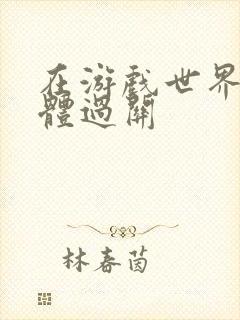 在游戏世界
體過關
林春茵